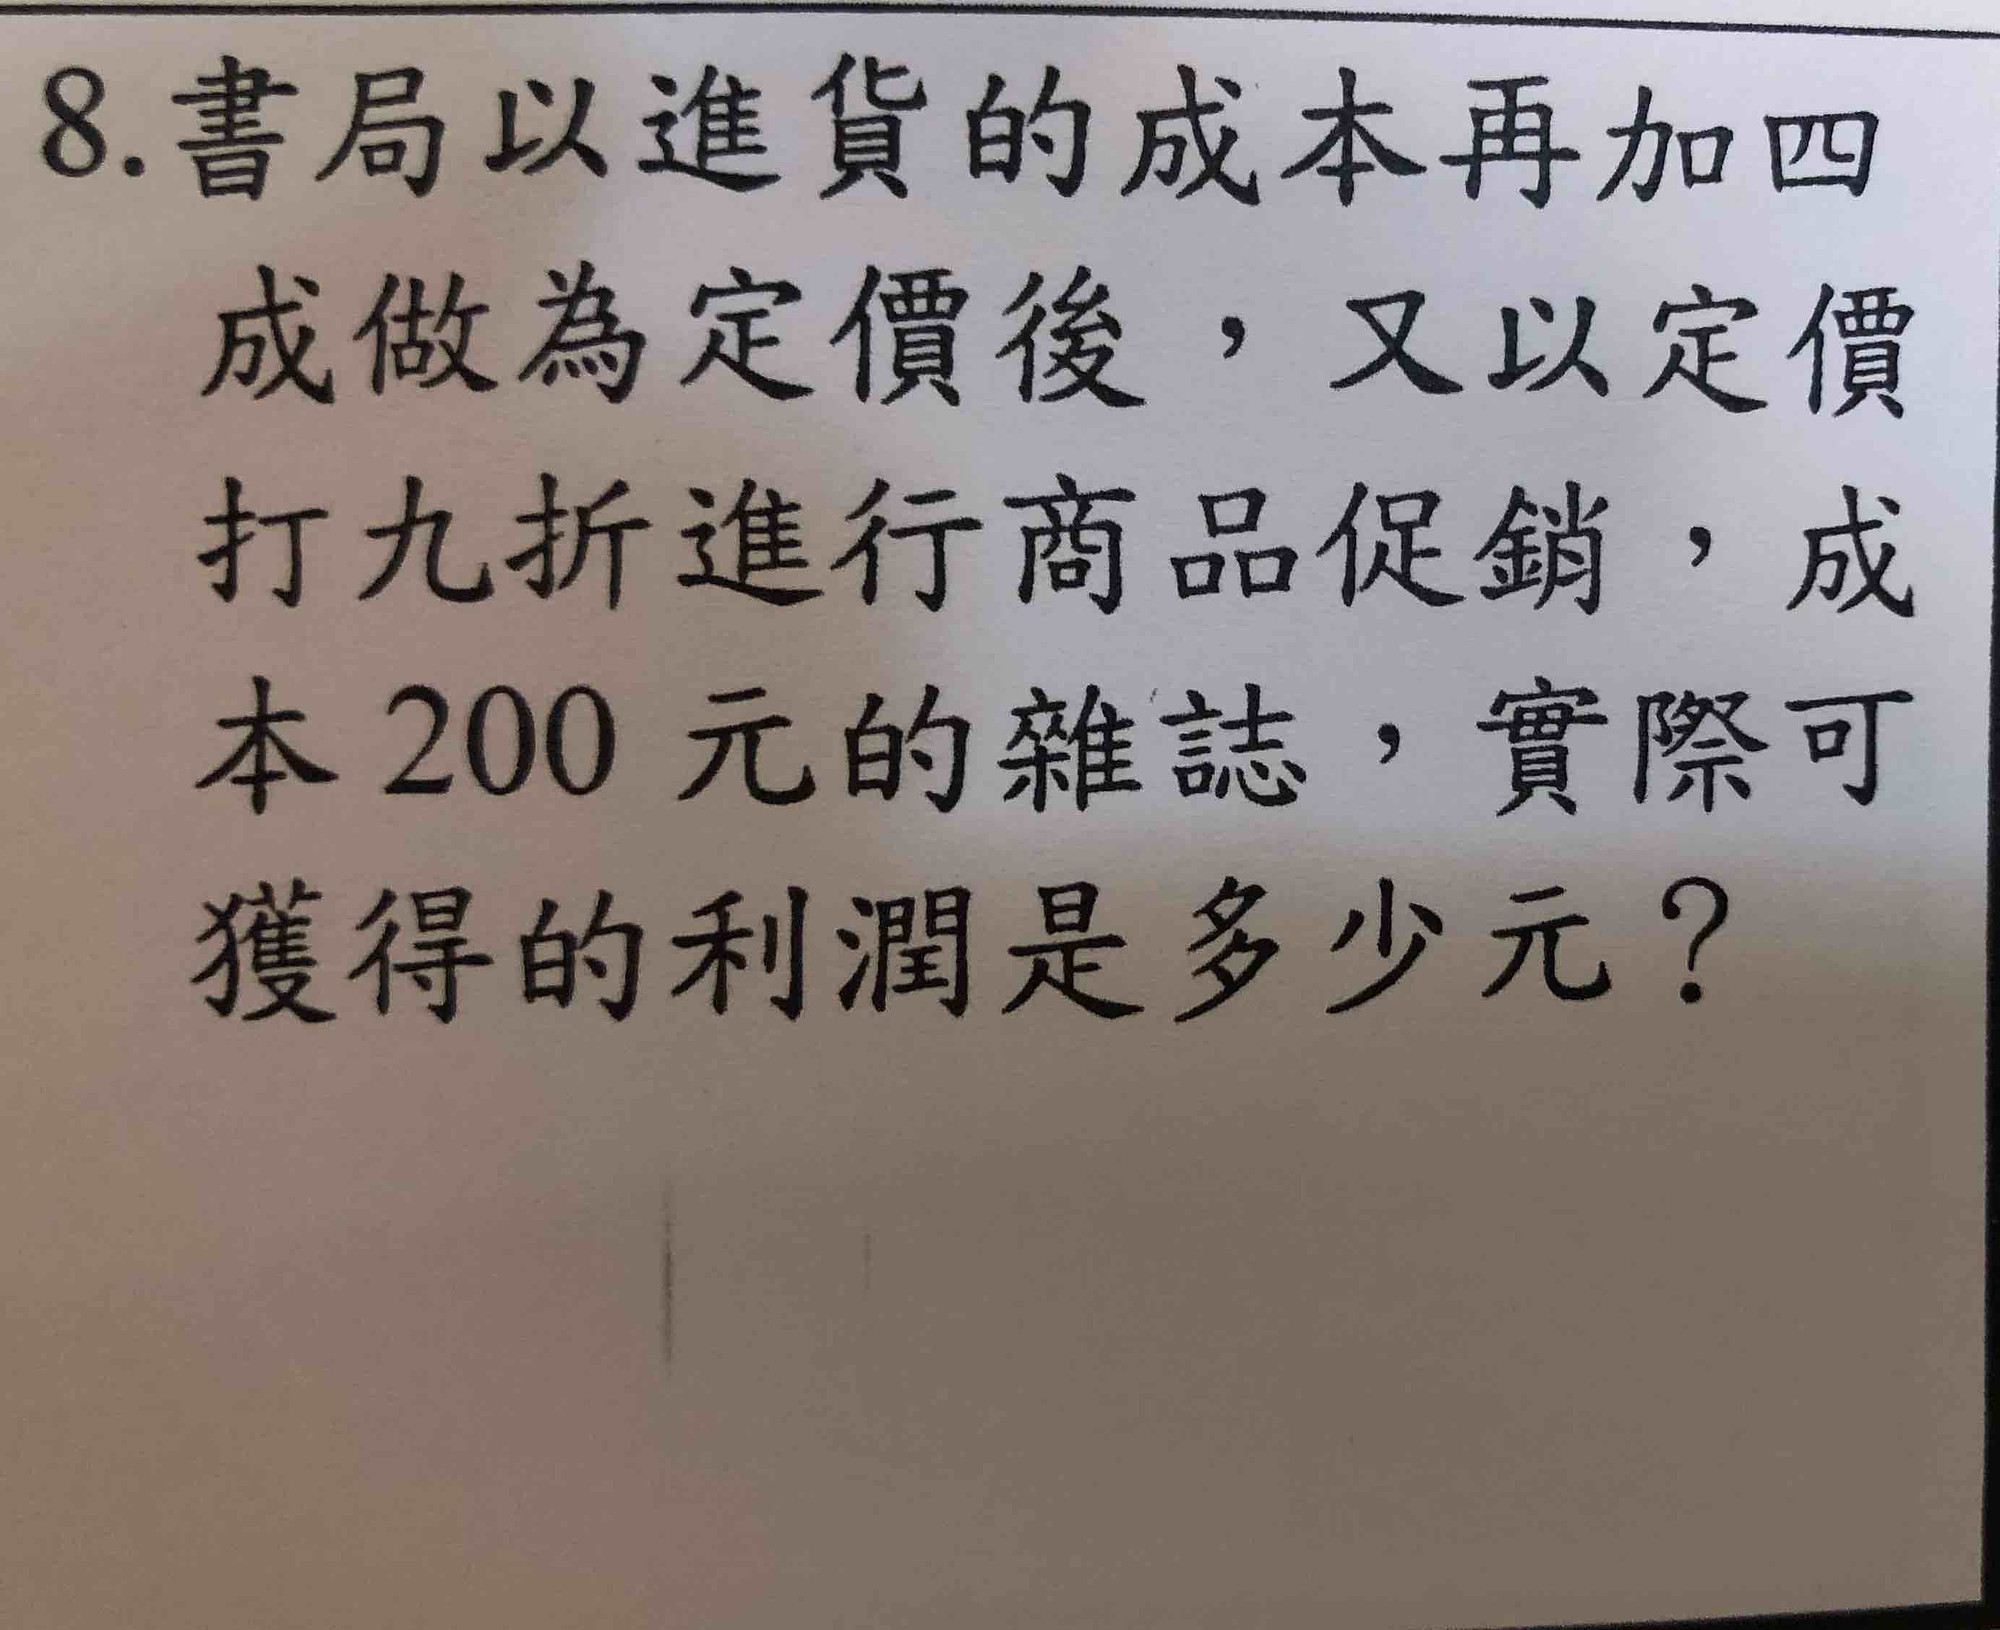 8.書局以進貨的成本再加四
成做為定價後，又以定價
打九折進行商品促銷，成
本200 元的雜誌，實際可
獲得的利潤是多少元？